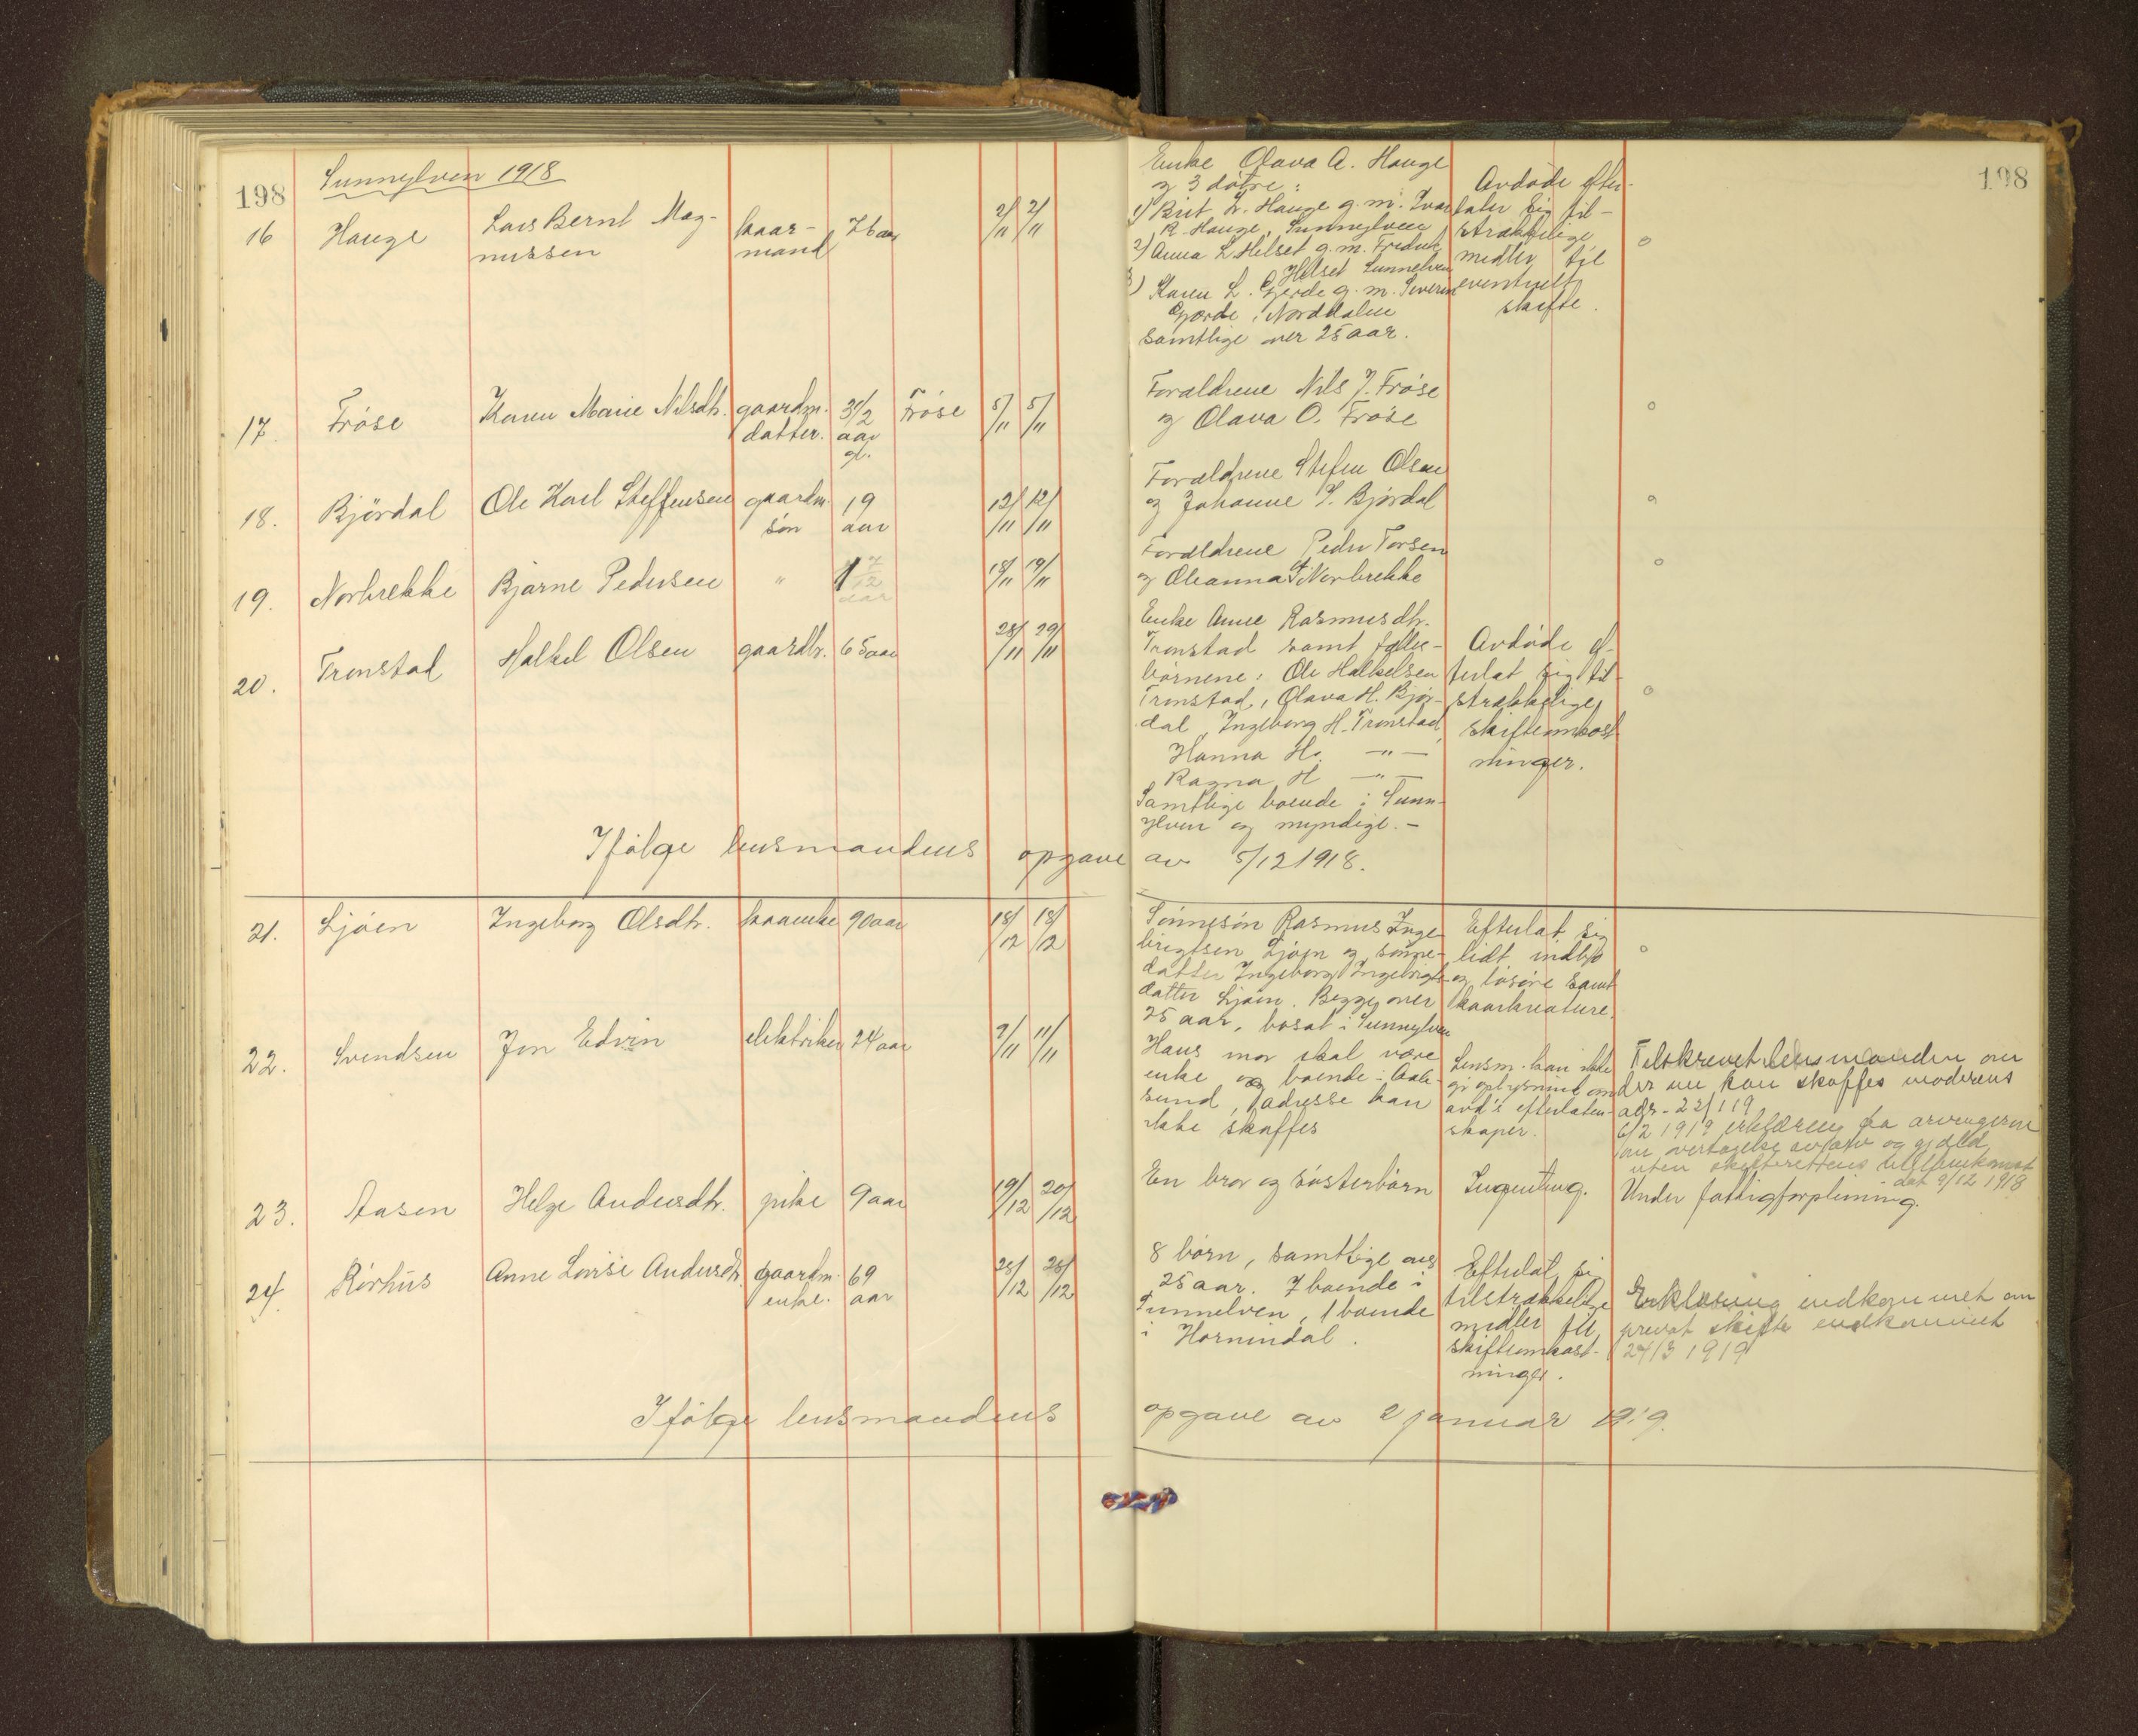 198
Sunnylven 1918
198
16 Hauge Lars Bernt Mag- kaar- 76 aar 2/11 2/11
nussen mand
Enke Olava A. Hauge
og 3 døtre:
1) Brit L. Hauge g. m. Ivar
R. Hauge, Sunnylven
2) Anna L. Helset g. m. Fredrik
Helset Sunnelven
3) Karen L. Gjerde g. m. Severin
Gjerde i Norddalen
samtlige over 25 aar.
Avdøde efter-
later sig til-
strækkelige
midler til
eventuelt
skifte.
17. Frøse Karen Marie Nilsdtr. gaardm. 3 1/2 Frøse 5/11 5/11
datter. aar
gl.
Forældrene Nils J. Frøse
og Olava O. Frøse
18. Bjørdal Ole Karl Steffensen gaardm. 19 12/11 12/11
søn aar
Forældrene Stefen Olsen
og Johanne I. Bjørdal
19. Norbrekke Bjarne Pedersen " 1 7/12 18/11 19/11
aar
Forældrene Peder Torsen
og Oleanna Norbrekke
20. Tronstad Halkel Olsen gaardbr. 65 aar 28/11 29/11
Enke Anne Rasmusdtr.
Tronstad samt fælles-
børnene: Ole Halkelsen
Tronstad, Olava H. Bjør-
dal, Ingeborg H. Tronstad,
Hanna H. — " —
Ragna H — " —
Samtlige boende i Sunn-
ylven og myndige. —
Avdøde ef-
terlat sig til-
strækkelige
skifteomkost
ninger.
Ifølge lensmandens opgave av 5/12 1918.
21. Ljøen Ingeborg Olsdtr. kaarenke 90 aar 18/12 18/12
Sønnesøn Rasmus Inge
brigtsen Ljøen og sønne-
datter Ingeborg Ingebrigts-
datter Ljøen. Begge over
25 aar, bosat i Sunnylven
Efterlat sig
lidt indbo
og løsøre samt
kaarkreature.
22. Svendsen Jon Edvin elektriker 24 aar 9/11 11/11
Hans mor skal være
enke og boende i Aale-
sund, adresse kan
ikke skaffes
Lensm. kan ikke
gi oplysning om
avd's efterlaten-
skaper.
Tilskrevet lensmanden om
der nu kan skaffes moderens
adr. - 22/1 19
6/2 1919 erklæring fra arvingerne
om overtagelse av arv og gjæld
uten skifterettens mellemkomst
dat 9/12 1918
23. Aasen Helge Andersdtr. pike 9 aar 19/12 20/12
En bror og søsterbørn Ingenting. Under fattigforpleining.
24. Rørhus Anne Lovise Andersdtr. gaardm. 69 28/12 28/12
enke. aar
8 børn, samtlige over
25 aar. 7 boende i
Sunnelven, 1 boende
i Hornindal.
Efterlat si
tilstrækkelige
midler til
skifteomkost-
ninger.
Erklæring indkommet om
privat skifte indkommet
24/3 1919
Ifølge lensmandens opgave av 2 januar 1919.